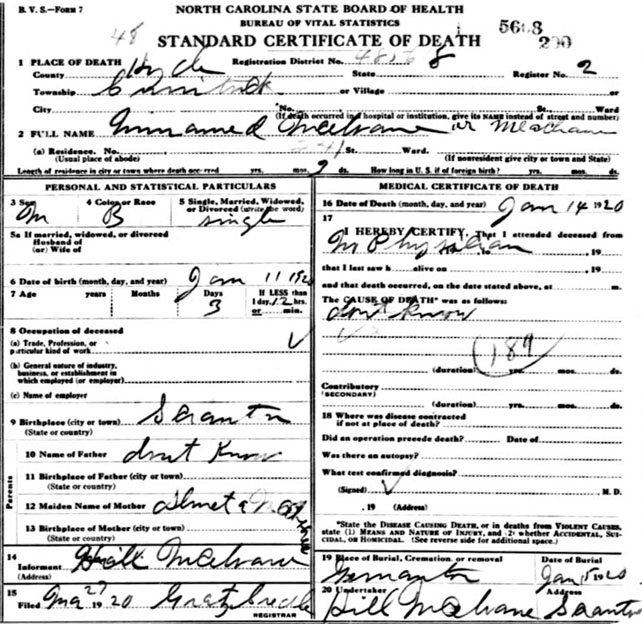 B. V. S.—FORM 7
NORTH CAROLINA STATE BOARD OF HEALTH
BUREAU OF VITAL STATISTICS
48
STANDARD CERTIFICATE OF DEATH
200
1 PLACE OF DEATH
County Hyde Registration District No. State Register No. 2
Township Currituck or Village or
City No. St. Ward
(If death occurred in hospital or institution, give its NAME instead of street and number)
2 FULL NAME Unnamed or
(a) Residence. No. St. Ward.
(Usual place of abode) (If nonresident give city or town and State)
Length of residence in city or town where death occurred yrs. mos. ds. How long in U. S. if of foreign birth? yrs. mos. ds.
PERSONAL AND STATISTICAL PARTICULARS
3 Sex M 4 Color or Race B 5 Single, Married, Widowed, or Divorced (write the word) single
5a If married, widowed, or divorced
Husband of
(or) Wife of
6 Date of birth (month, day, and year) Jan 11 1920
7 Age years Months Days 3 If LESS than 1 day, 12 hrs. or min.
8 Occupation of deceased
(a) Trade, Profession, or
particular kind of work
(b) General nature of industry,
business, or establishment in
which employed (or employer)
(c) Name of employer
9 Birthplace (city or town) Scranton
(State or country)
Parents
10 Name of Father dont Know
11 Birthplace of Father (city or town)
(State or country)
12 Maiden Name of Mother
13 Birthplace of Mother (city or town)
(State or country)
14
Informant
(Address)
15
Filed 27 1920
REGISTRAR
MEDICAL CERTIFICATE OF DEATH
16 Date of Death (month, day, and year) Jan 14 1920
17
I HEREBY CERTIFY, That I attended deceased from
No Physician to , 19
that I last saw h alive on , 19
and that death occurred, on the date stated above, at m.
The CAUSE OF DEATH* was as follows:
dont know
189
(duration) yrs. mos. ds.
Contributory
(SECONDARY)
(duration) yrs. mos. ds.
18 Where was disease contracted
if not at place of death?
Did an operation precede death? Date of
Was there an autopsy?
What test confirmed diagnosis?
(Signed) M. D.
, 19 (Address)
*State the DISEASE CAUSING DEATH, or in deaths from VIOLENT CAUSES,
state (1) MEANS AND NATURE OF INJURY, and (2) whether ACCIDENTAL, SUI-
CIDAL, or HOMICIDAL. (See reverse side for additional space.)
19 Place of Burial, Cremation, or removal Date of Burial
Jan 15 1920
20 Undertaker Address
Scranton